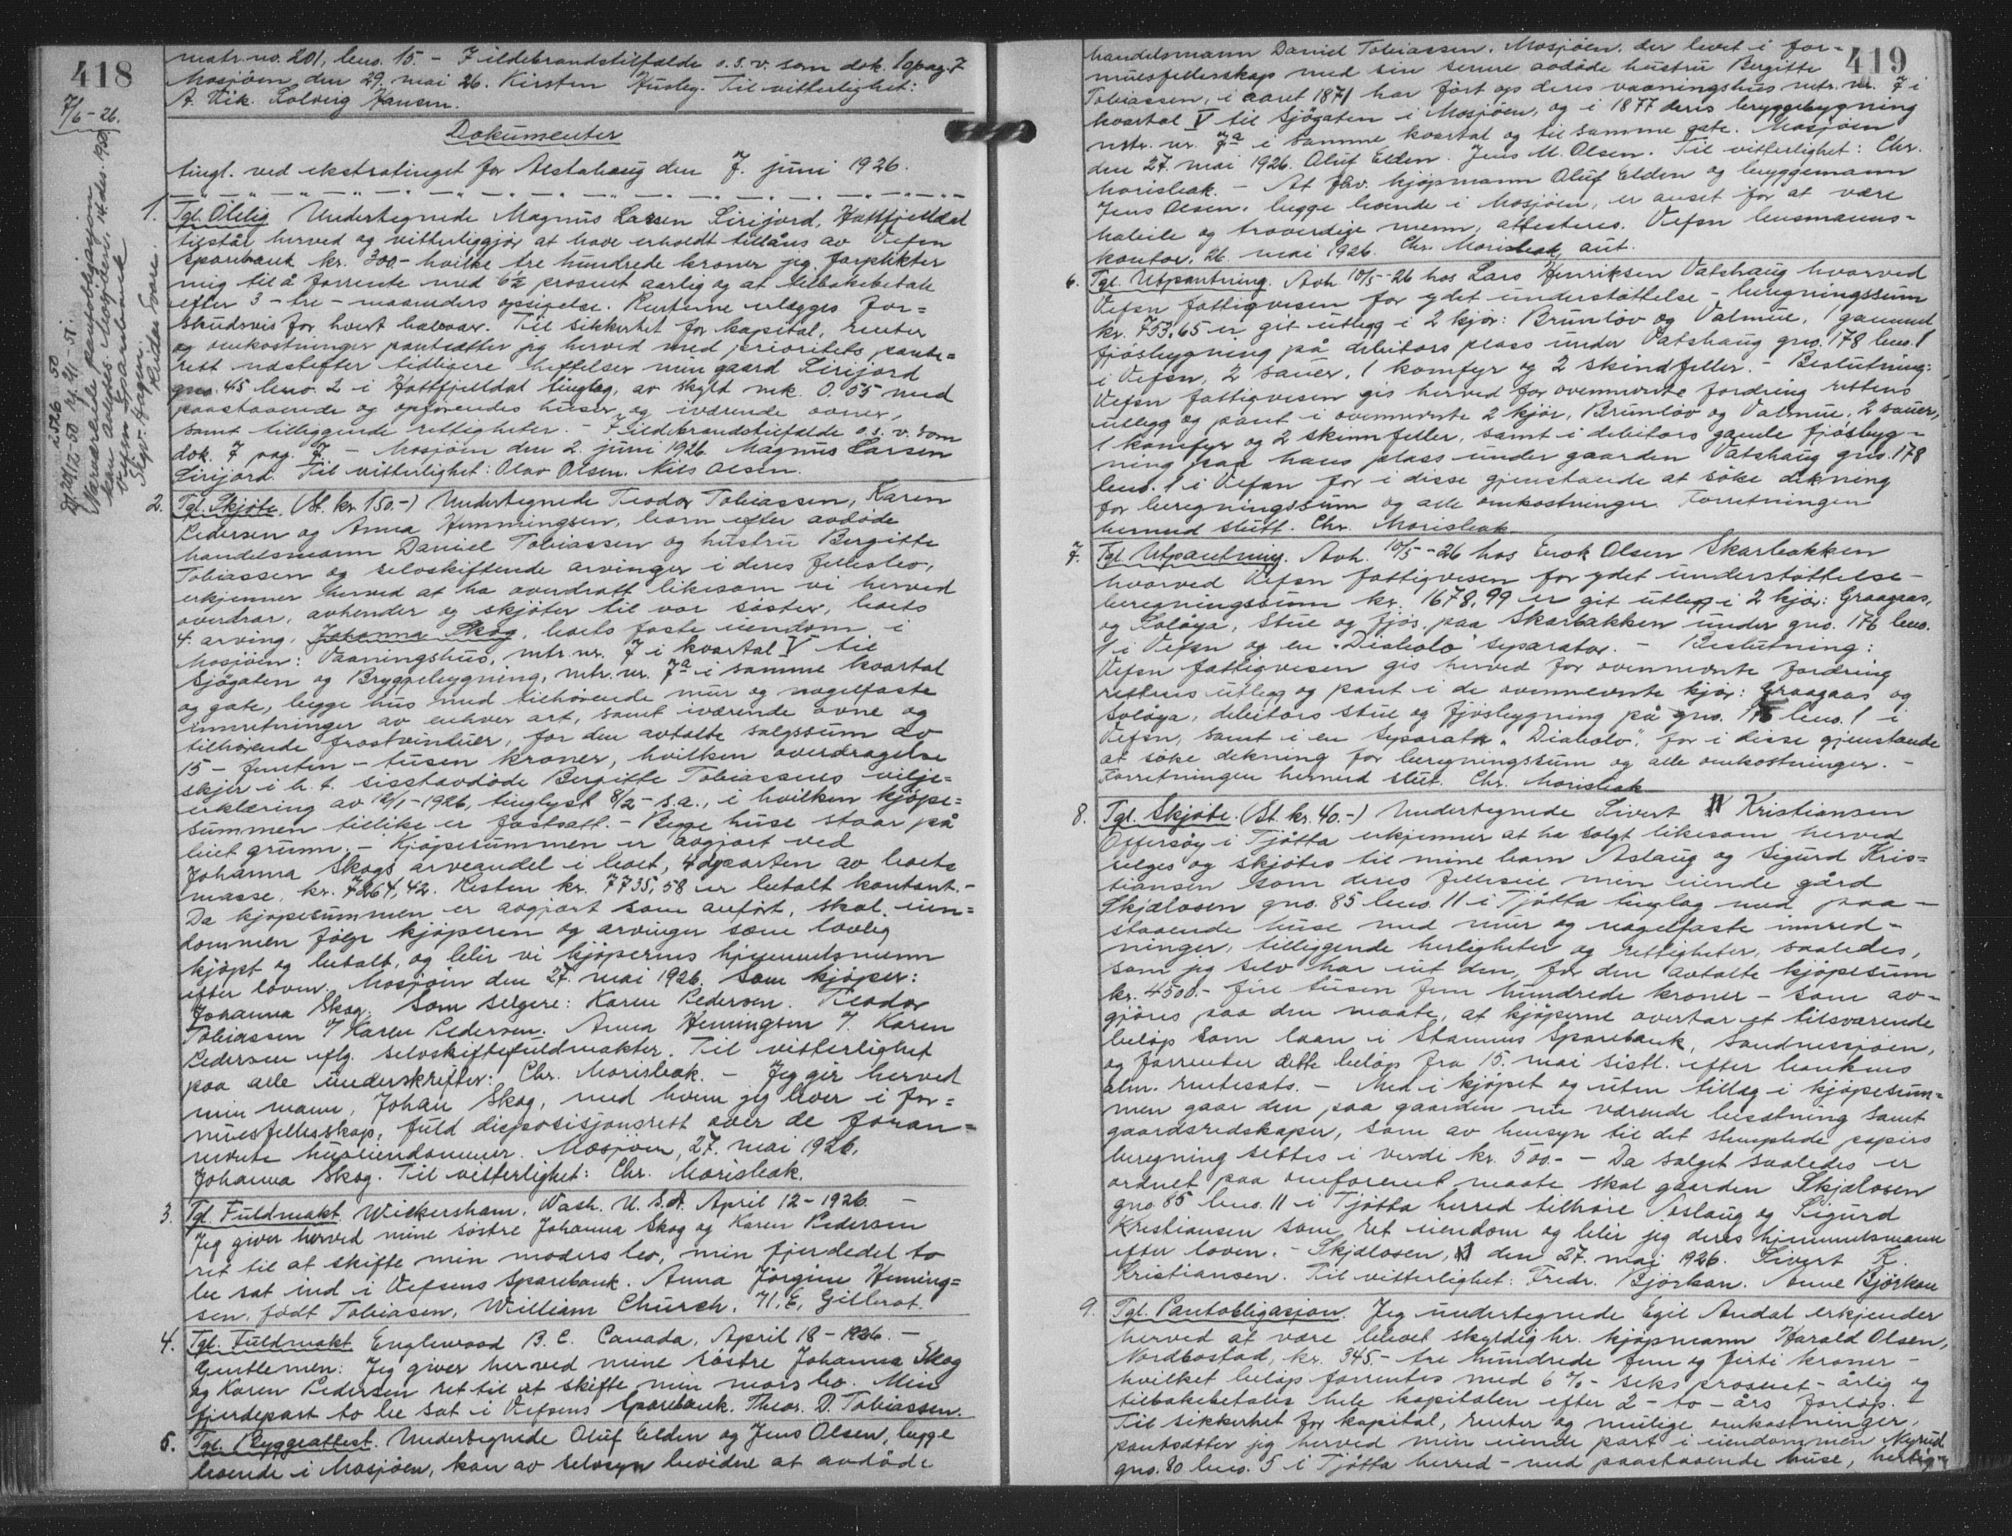 418
7/6-26.
matr. no. 201, bno. 15. - I ildebrandstilfælde o.s.v. som dok. 1 pag. 7
Mosjöen, den 29. mai 26. Kirsten Husby. Til vitterlighet:
A. Vik. Solveig Hansen.
Dokumenter
tingl. ved ekstratinget for Alstahaug den 7. juni 1926.
1. Tgl. Oblig. Undertegnede Magnus Larsen Lirijord, Hattfjelldal
tilstår herved og vitterliggjör at have erholdt tillåns av Vefsn
sparebank kr. 300- hvilke tre hundrede kroner jeg forplikter
mig til å forrente med 6½ prosent aarlig og at tilbakebetale
efter 3 - tre - maaneders opsigelse. Renterne erlægges for=
skudsvis for hvert halvaar. Til sikkerhet for kapital, renter
og omkostninger pantsætter jeg herved med prioritets pante=
rett næstefter tidligere heftelser min gaard Lirijord
gno. 45 bno. 2 i Hattfjelldal tinglag, av skyld mk. 0.55 med
paastaaende og opförendes huser og iværende ovner,
samt tilliggende rettigheter. - I ildebrandstilfælde o.s.v. som
dok. 7 pag. 7. - Mosjöen den 2. juni 1926. Magnus Larsen
Lirijord. Til vitterlighet: Olav Olsen. Nils Olsen.
2. Tgl. Skjöte. (St. kr. 150.-) Undertegnede Teodor Tobiassen, Karen
Pedersen og Anna Hemmingsen, barn efter avdöde
handelsmann Daniel Tobiassen og hustru Bergitte
Tobiassen og selvskiftende arvinger i deres fællesbo,
erkjenner herved at ha overdratt likesom vi herved
overdrar, avhender og skjöter til vor söster, boets
4. arving, Johanna Skog, boets faste eiendom i
Mosjöen: Vaaningshus, mtr. nr. 7 i kvartal V til
Sjögaten og Bryggebygning, mtr. nr. 7a i samme kvartal
og gate, begge hus med tilhörende mur og nagelfaste
innretninger av enhver art, samt iværende ovne og
tilhörende frostvinduer, for den avtalte salgssum av
15 - femten - tusen kroner, hvilken overdragelse
skjer i h. t. sistavdöde Bergitte Tobiassens vilje=
erklæring av 12/1-1926, tinglyst 8/2 - s.a., i hvilken kjöpe=
summen tillike er fastsatt. - Begge huse staar på
leiet grunn. - Kjöpesummen er avgjort ved
Johanna Skogs arveandel i boet, 4departen av boets
masse, kr. 7264,42. Resten kr. 7735,58 er betalt kontant.-
Da kjöpesummen er avgjort som anfört, skal eien=
dommen fölge kjöperen og arvinger som lovlig
kjöpt og betalt, og blir vi kjöperens hjemmelsmenn
efter loven. Mosjöen den 27. mai 1926. Som kjöper:
Johanna Skog. Som selgere: Karen Pedersen. Teodor
Tobiassen v/ Karen Pedersen. Anna Hemingsen v/ Karen
Pedersen iflg. selvskiftefuldmakter. Til vitterlighet
paa alle underskrifter: Chr. Morisbak. - Jeg gir herved
min mann, Johan Skog, med hvem jeg lever i for=
muesfellesskap, fuld disposisjonsrett over de foran=
nevnte huseiendommer. Mosjöen, 27. mai 1926.
Johanna Skog. Til vitterlighet: Chr. Morisbak.
3. Tgl. Fuldmakt. Wickersham, Wash. U. S. A. April 12-1926. -
Jeg giver herved mine sostre Johanna Skog og Karen Pedersen
ret til at skifte min moders bo, min fjerdedel to
be sat ind i Vefsens Sparebank. Anna Jörgine Heming=
sen, født Tobiasen, William Church. H. E. Gilbrot.
4. Tgl. Fuldmakt. Englewood B. C. Canada, April 18-1926. -
Gentlemen: Jeg giver herved mine söstre Johanna Skog
og Karen Pedersen ret til at skifte min mors bo. Min
fjerdepart to be sat i Vefsens Sparebank. Theor. D. Tobiassen.
5. Tgl. Byggeattest. Undertegnede Oluf Elden og Jens Olsen, begge
boende i Mosjöen, kan av selvsyn bevidne at avdöde
419
handelsmann Daniel Tobiassen, Mosjöen, der levet i for=
muesfellesskap med sin senere avdöde hustru Bergitte
Tobiassen, i aaret 1871 har fört op deres vaaningshus mtr. nr. 7 i
kvartal V til Sjögaten i Mosjöen, og i 1877 deres bryggebygning
mtr. nr. 7a i samme kvartal og til samme gate. Mosjöen
den 27. mai 1926. Oluf Elden. Jens M. Olsen. Til vitterlighet: Chr.
Morisbak. - At fhv. kjöpmann Oluf Elden og byggemann
Jens Olsen, begge boende i Mosjöen, er anset for at være
habile og troverdige menn, attesteres. Vefsn lensmanns=
kontor, 26. mai 1926. Chr. Morisbak, aut.
6. Tgl. Utpantning. Avh. 10/5-26 hos Lars Henriksen Vatshaug hvorved
Vefsn fattigvesen for ydet understöttelse - beregningssum
kr. 753,65 er git utlegg i 2 kjör: Brunlöv og Valmue, 1 gammel
fjösbygning på debitors plass under Vatshaug gno. 178 bno. 1
i Vefsn, 2 sauer, 1 komfyr og 2 skindfeller. - Beslutning:
Vefsn fattigvesen gis herved for ovennevnte fordring rettens
utlegg og pant i ovennevnte 2 kjör, Brunlöv og Valmue, 2 sauer,
1 komfyr og 2 skinnfeller, samt i debitors gamle fjösbyg=
ning paa hans plass under gaarden Vatshaug gno. 178
bno. 1 i Vefsn for i disse gjenstande at söke dekning
for beregningssum og alle omkostninger. Forretningen
hermed slutt. Chr. Morisbak.
7. Tgl. Utpantning. Avh. 10/5-26 hos Enok Olsen Skarbakken
hvorved Vefsn fattigvesen for ydet understøttelse -
beregningssum kr. 1678,99 er git utlegg i 2 kjör: Graagaas,
og Solöya, stue og fjös paa Skarbakken under gno. 176 bno.
1 i Vefsn og en "Diabolo" separator. - Beslutning:
Vefsn fattigvesen gis herved for ovennevnte fordring
rettens utlegg og pant i de ovennevnte kjör: Graagaas og
Solöya, debitors stue og fjösbygning på gno. 176 bno. 1 i
Vefsn, samt i en separator "Diabolo", for i disse gjenstande
at söke dekning for beregningssum og alle omkostninger. -
Forretningen hermed slut. Chr. Morisbak
8. Tgl. Skjöte. (St. kr. 40.-) Undertegnede Sivert Kristiansen
Offersöy i Tjötta erkjenner at ha solgt likesom herved
selges og skjötes til mine barn Aslaug og Sigurd Kris=
tiansen som deres felleseie min eiende gård
Skjælosen gno. 85 bno. 11 i Tjötta tinglag med paa -
staaende huse med mur og nagelfaste innred -
ninger, tilliggende herligheter og rettigheter, saaledes,
som jeg selv har eiet den, for den avtalte kjöpesum
kr. 4500.- fire tusen fem hundrede kroner - som av -
gjöres paa den maate, at kjöperne overtar et tilsvarende
belöp som laan i Stamnes Sparebank, Sandnessjöen,
og forrenter dette belöp fra 15. mai sistl. efter bankens
alm. rentesats. - Med i kjöpet og uten tillæg i kjöpesum=
men gaar den paa gaarden nu værende besætning samt
gaardsredskaper, som av hensyn til det stemplede papirs
beregning settes i verdi kr. 500.- - Da salget saaledes er
ordnet paa omforenet maate skal gaarden Skjælosen
gno 85 bno. 11 i Tjötta herred tilhöre Aslaug og Sigurd
Kristiansen som ret eiendom og blir jeg deres hjemmelsmann
efter loven. - Skjælosen, den 27. mai 1926. Sivert K.
Kristiansen. Til vitterlighet: Fredr. Björkan. Anne Björkan
9. Tgl. Pantobligasjon. Jeg undertegnede Egil Andal erkjender
herved at være blevet skyldig hr. kjöpmann Harald Olsen,
Nordbostad, kr. 345- tre hundrede fem og firti kroner -
hvilket belöp forrentes med 6 % - seks prosent - årlig og
tilbakebetales hele kapitalen efter 2 - to - års forlöp. -
Til sikkerhet for kapital, renter og mulige omkostninger,
pantsætter jeg herved min eiende part i eiendommen Nyrud
gno. 80 bno. 5 i Tjötta herred - med paastaaende huse, herlig=